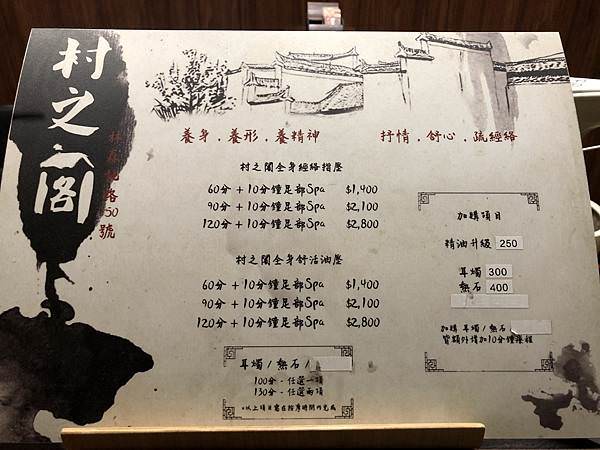 村之閣
號
養身．養形．養精神
抒情．舒心．疏經絡
村之閣全身經絡指壓
60分 + 10分鐘足部Spa $1,400
90分 + 10分鐘足部Spa $2,100
120分 + 10分鐘足部Spa $2,800
村之閣全身舒活油壓
60分 + 10分鐘足部Spa $1,400
90分 + 10分鐘足部Spa $2,100
120分 + 10分鐘足部Spa $2,800
耳燭 / 熱石 /
100分 - 任選一項
130分 - 任選兩項
以上項目需在按摩時間內完成
加購項目
精油升級 250
耳燭 300
熱石 400
加購 耳燭 / 熱石 /
需額外增加10分鐘療程